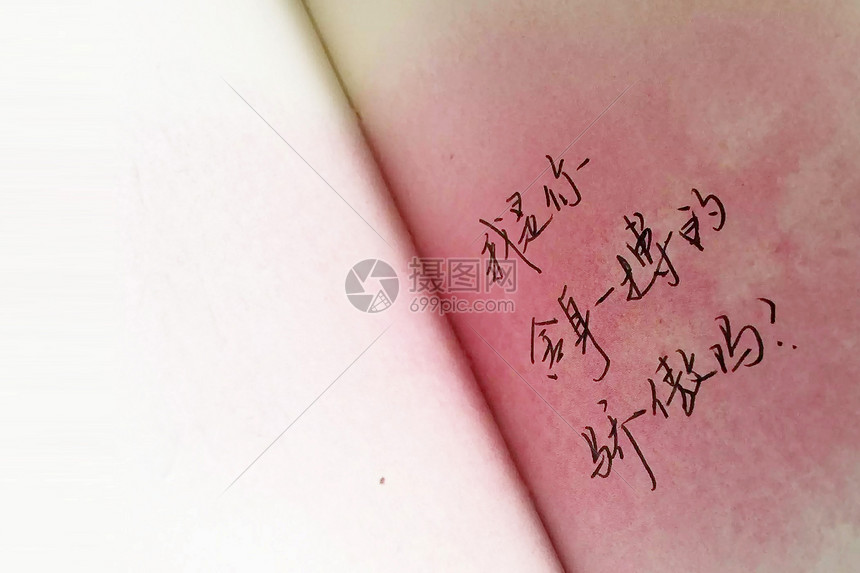 我是你
舍身一搏的
骄傲吗?
摄图网
699pic.com